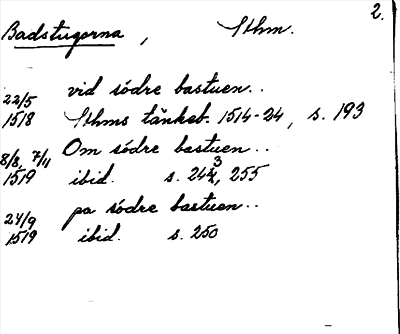 2.
Badstugorna, Sthm.
vid södre bastuen..
22/5
1518 Sthms tänkeb. 1514-24, s. 193
8/8, 7/11 Om södre bastuen..
1519 ibid. s. 243, 255
pa södre bastuen..
24/9
1519 ibid. s. 250